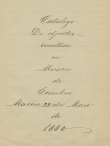 Catalogo
De objectos
remettidos
ao
Museu
de
Coimbra
Macau 22 de Maio
de
1880